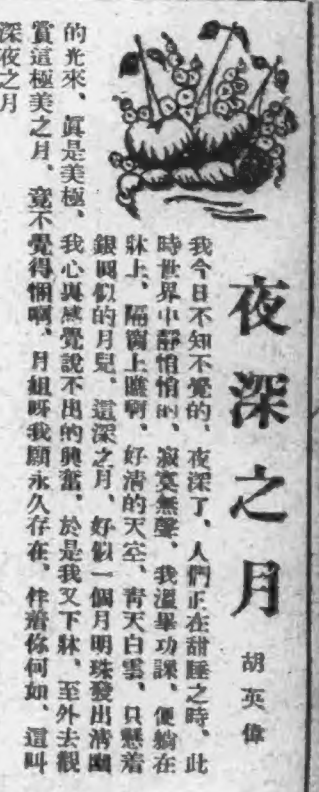 夜深之月
胡英偉
我今日不知不覺的、夜深了、人們正在甜睡之時、此
時世界中靜悄悄的、寂寞無聲、我溫畢功課、便躺在
牀上、隔窗上瞧啊、好清的天空、青天白雲、只懸着
銀圓似的月兒、這深之月、好似一個月明珠發出清
的光來、眞是美極、我心裏感覺說不出的興奮、於是我又下牀、至外去觀
賞這極美之月、竟不覺得悃啊、月姐呀我願永久存在、伴着你何如、這叫
深夜之月